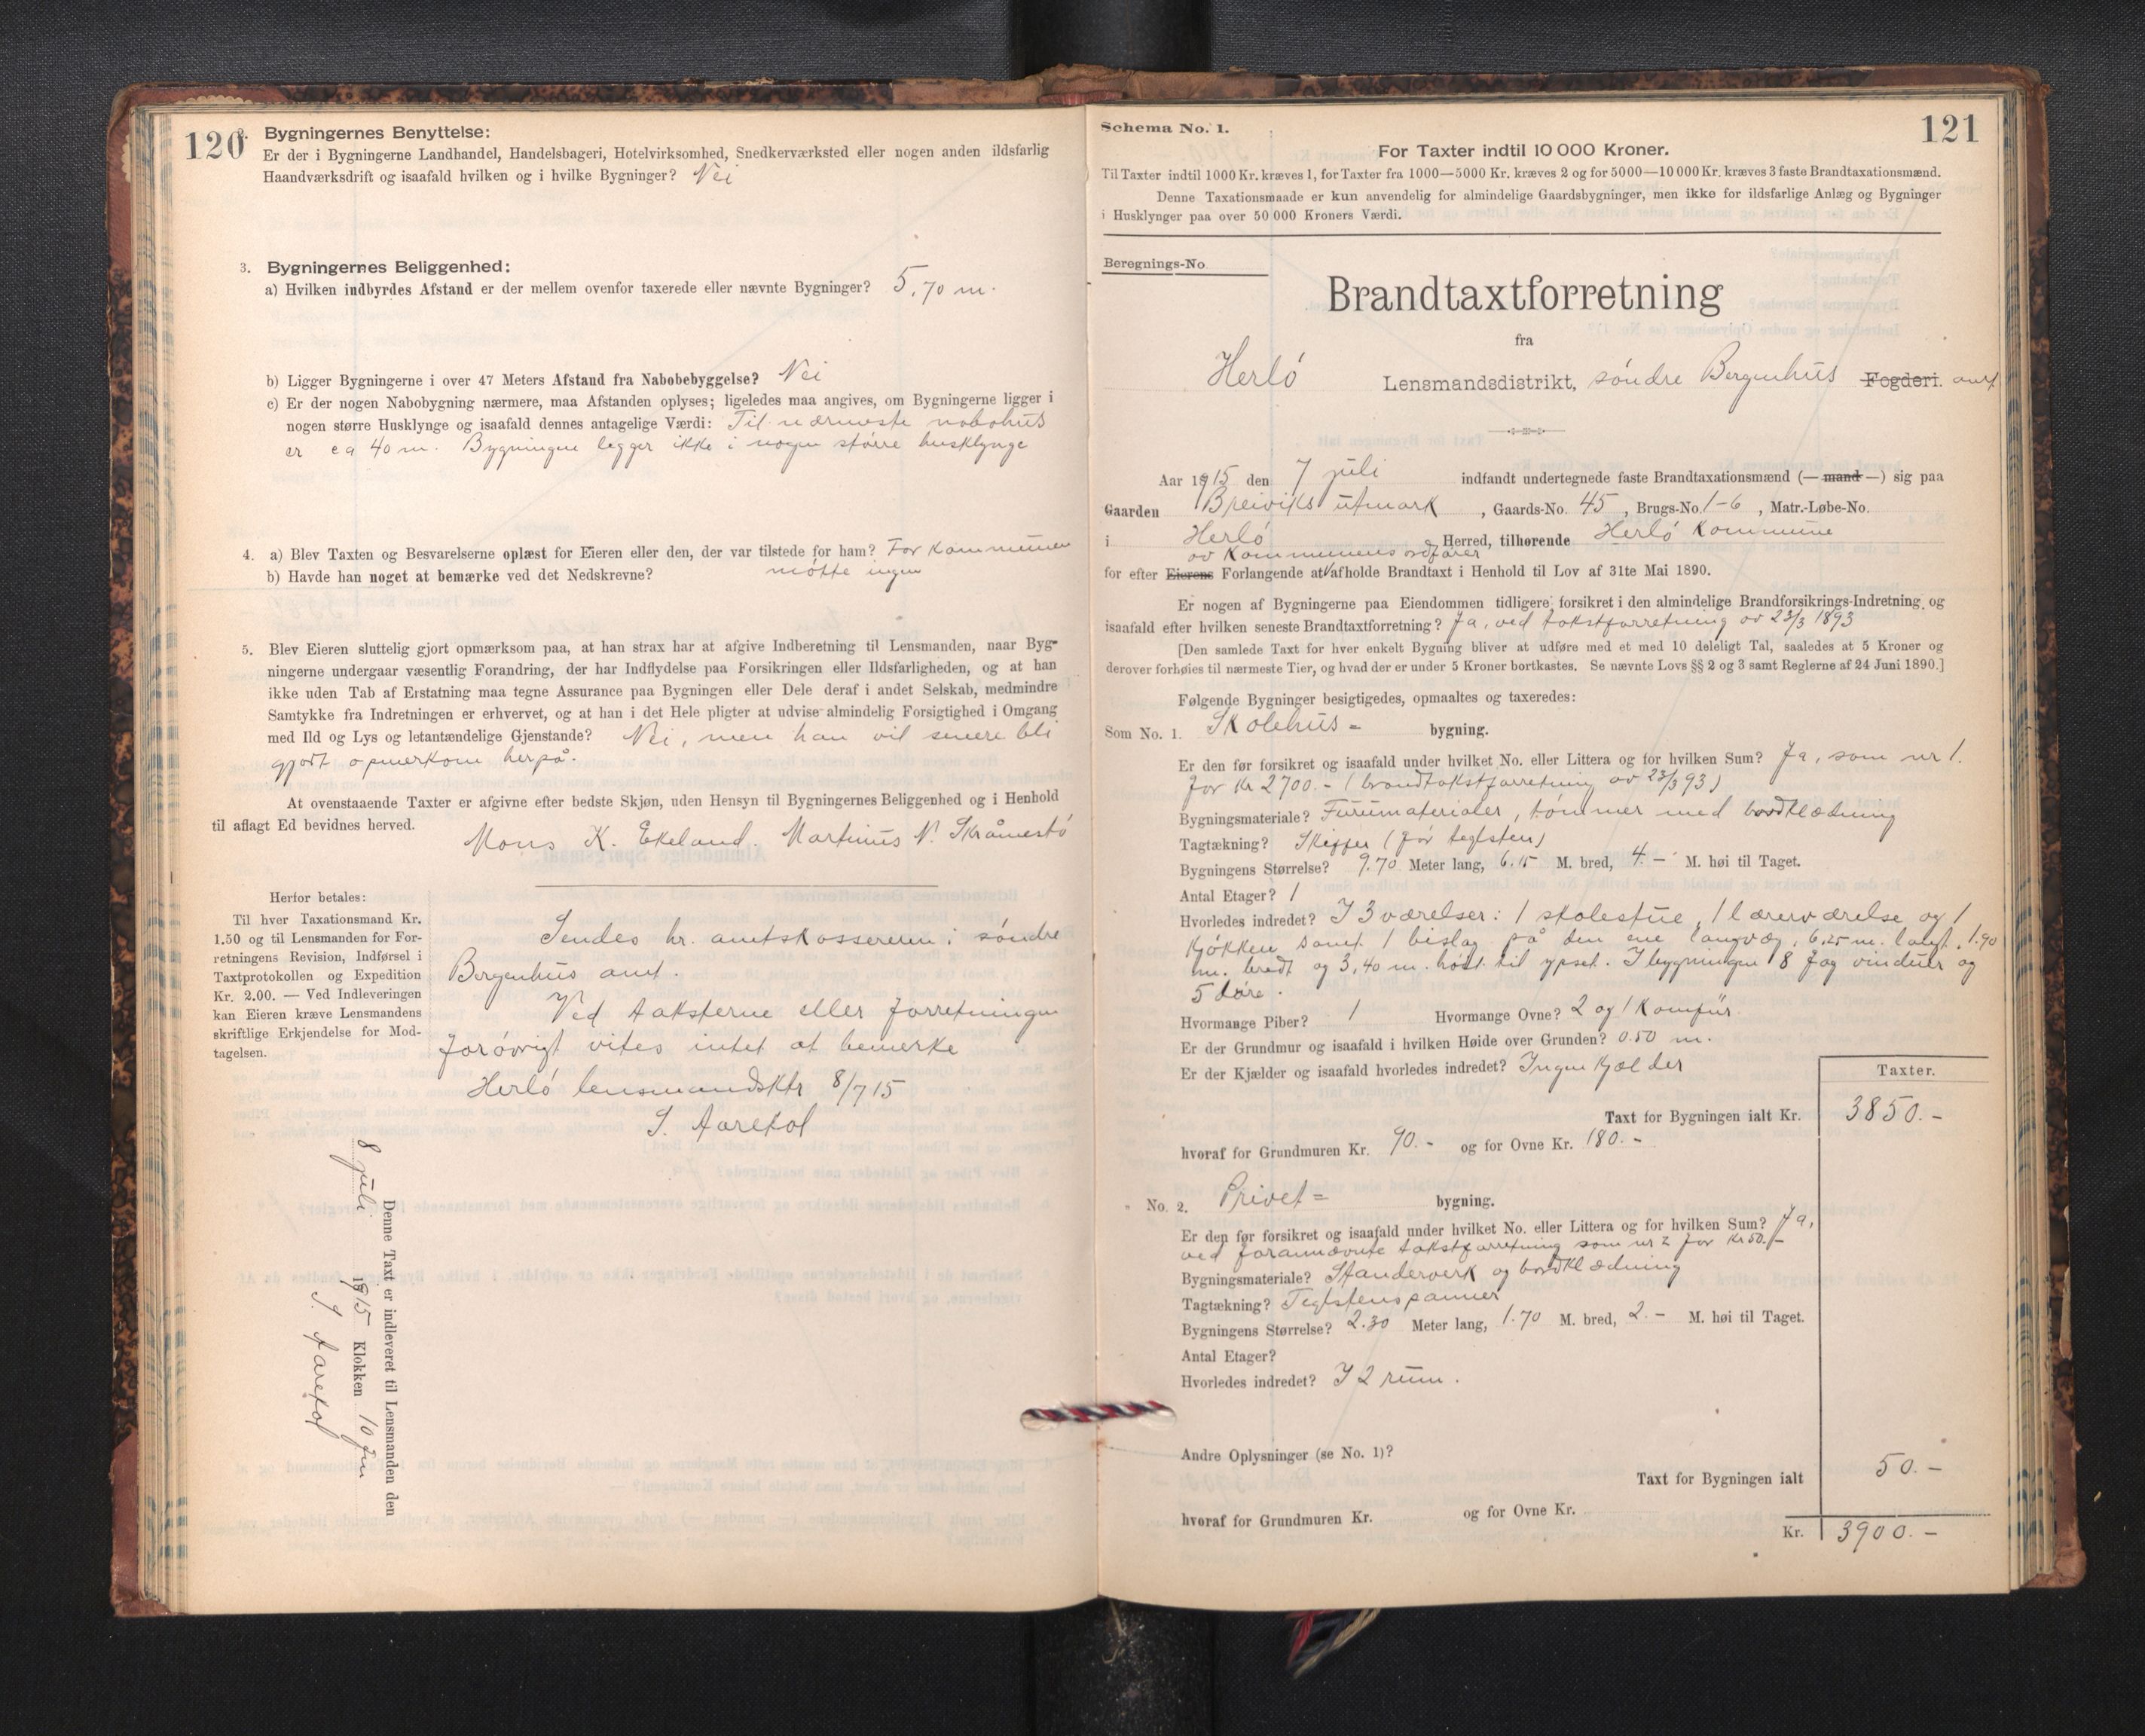 120
2. Bygningernes Benyttelse:
Er der i Bygningerne Landhandel, Handelsbageri, Hotelvirksomhed, Snedkerværksted eller nogen anden ildsfarlig
Haandværksdrift og isaafald hvilken og i hvilke Bygninger? Nei
3. Bygningernes Beliggenhed:
a) Hvilken indbyrdes Afstand er der mellem ovenfor taxerede eller nævnte Bygninger? 5,70 m.
b) Ligger Bygningerne i over 47 Meters Afstand fra Nabobebyggelse? Nei
c) Er der nogen Nabobygning nærmere, maa Afstanden oplyses; ligeledes maa angives, om Bygningerne ligger i
nogen større Husklynge og isaafald dennes antagelige Værdi: Til nærmeste nabohus
er ca 40 m. Bygningene legger ikke i nogen større husklynge
4. a) Blev Taxten og Besvarelserne oplæst for Eieren eller den, der var tilstede for ham? For kommunen
b) Havde han noget at bemærke ved det Nedskrevne? møtte ingen
5. Blev Eieren sluttelig gjort opmærksom paa, at han strax har at afgive Indberetning til Lensmanden, naar Byg-
ningerne undergaar væsentlig Forandring, der har Indflydelse paa Forsikringen eller Ildsfarligheden, og at han
ikke uden Tab af Erstatning maa tegne Assurance paa Bygningen eller Dele deraf i andet Selskab, medmindre
Samtykke fra Indretningen er erhvervet, og at han i det Hele pligter at udvise almindelig Forsigtighed i Omgang
med Ild og Lys og letantændelige Gjenstande? Nei, men han vil senere bli
gjort opmerkom herpå.
At ovenstaaende Taxter er afgivne efter bedste Skjøn, uden Hensyn til Bygningernes Beliggenhed og i Henhold
til aflagt Ed bevidnes herved.
Mons K. Ekeland. Martinus N. Skråmestø
Herfor betales:
Til hver Taxationsmand Kr.
1.50 og til Lensmanden for For-
retningens Revision, Indførsel i
Taxtprotokollen og Expedition
Kr. 2.00. — Ved Indleveringen
kan Eieren kræve Lensmandens
skriftlige Erkjendelse for Mod-
tagelsen.
Sendes hr. amtskassereren i søndre
Bergenhus amt.
Ved taksterne eller forretningen
forøvrigt vites intet at bemerke
Herlø lensmandsktr 8/7 15
S. Aarefol
Denne Taxt er indleveret til Lensmanden den
8 juli 1915 Klokken 10 fm
S. Aarefol
121
Schema No. 1.
For Taxter indtil 10 000 Kroner.
Til Taxter indtil 1000 Kr. kræves 1, for Taxter fra 1000—5000 Kr. kræves 2 og for 5000—10 000 Kr. kræves 3 faste Brandtaxationsmænd.
Denne Taxationsmaade er kun anvendelig for almindelige Gaardsbygninger, men ikke for ildsfarlige Anlæg og Bygninger
i Husklynger paa over 50 000 Kroners Værdi.
Beregnings-No.
Brandtaxtforretning
fra
Herlø Lensmandsdistrikt, søndre Bergenhus Fogderi. amt
Aar 1915 den 7 juli indfandt undertegnede faste Brandtaxationsmænd (— mand —) sig paa
Gaarden Breiviks utmark, Gaards-No. 45, Brugs-No. 1-6, Matr.-Løbe-No.
i Herlø Herred, tilhørende Herlø Kommune
av Kommunens ordfører
for efter Eierens Forlangende at afholde Brandtaxt i Henhold til Lov af 31te Mai 1890.
Er nogen af Bygningerne paa Eiendommen tidligere forsikret i den almindelige Brandforsikrings-Indretning og
isaafald efter hvilken seneste Brandtaxtforretning? Ja, ved takstforretning av 23/3 1893
[Den samlede Taxt for hver enkelt Bygning bliver at udføre med et med 10 deleligt Tal, saaledes at 5 Kroner og
derover forhøies til nærmeste Tier, og hvad der er under 5 Kroner bortkastes. Se nævnte Lovs §§ 2 og 3 samt Reglerne af 24 Juni 1890.]
Følgende Bygninger besigtigedes, opmaaltes og taxeredes:
Som No. 1. Skolehus= bygning.
Er den før forsikret og isaafald under hvilket No. eller Littera og for hvilken Sum? Ja, som nr 1.
for kr 2700.- (brandtakstforretning av 23/3 93)
Bygningsmateriale? Furumaterialer, tømmer med bordklædning
Tagtækning? Skiffer (før teglsten)
Bygningens Størrelse? 9.70 Meter lang, 6.15 M. bred, 4.- M. høi til Taget.
Antal Etager? 1
Hvorledes indredet? I 3 værelser: 1 skolestue, 1 lærerværelse og 1
kjøkken samt 1 bislag på den ene langvæg, 6,25 m. langt, 1.90
m. bredt og 3,40 m. høit til ypset. I bygningen 8 fag vinduer og
5 døre.
Hvormange Piber? 1 Hvormange Ovne? 2 og 1 Komfur
Er der Grundmur og isaafald i hvilken Høide over Grunden? 0.50 m.
Er der Kjælder og isaafald hvorledes indredet? Ingen kjælder
Taxter.
Taxt for Bygningen ialt Kr. 3850.-
hvoraf for Grundmuren Kr. 90.- og for Ovne Kr. 180.-
No. 2. Privet= bygning.
Er den før forsikret og isaafald under hvilket No. eller Littera og for hvilken Sum? Ja,
ved forannævnte takstforretning som nr 2 for kr 50.-
Bygningsmateriale? Standerverk og bordklædning
Tagtækning? Teglstenspanner
Bygningens Størrelse? 2.30 Meter lang, 1.70 M. bred, 2.- M. høi til Taget.
Antal Etager?
Hvorledes indredet? I 2 rum.
Andre Oplysninger (se No. 1)?
Taxt for Bygningen ialt 50.-
hvoraf for Grundmuren Kr. og for Ovne Kr.
Kr. 3900.-